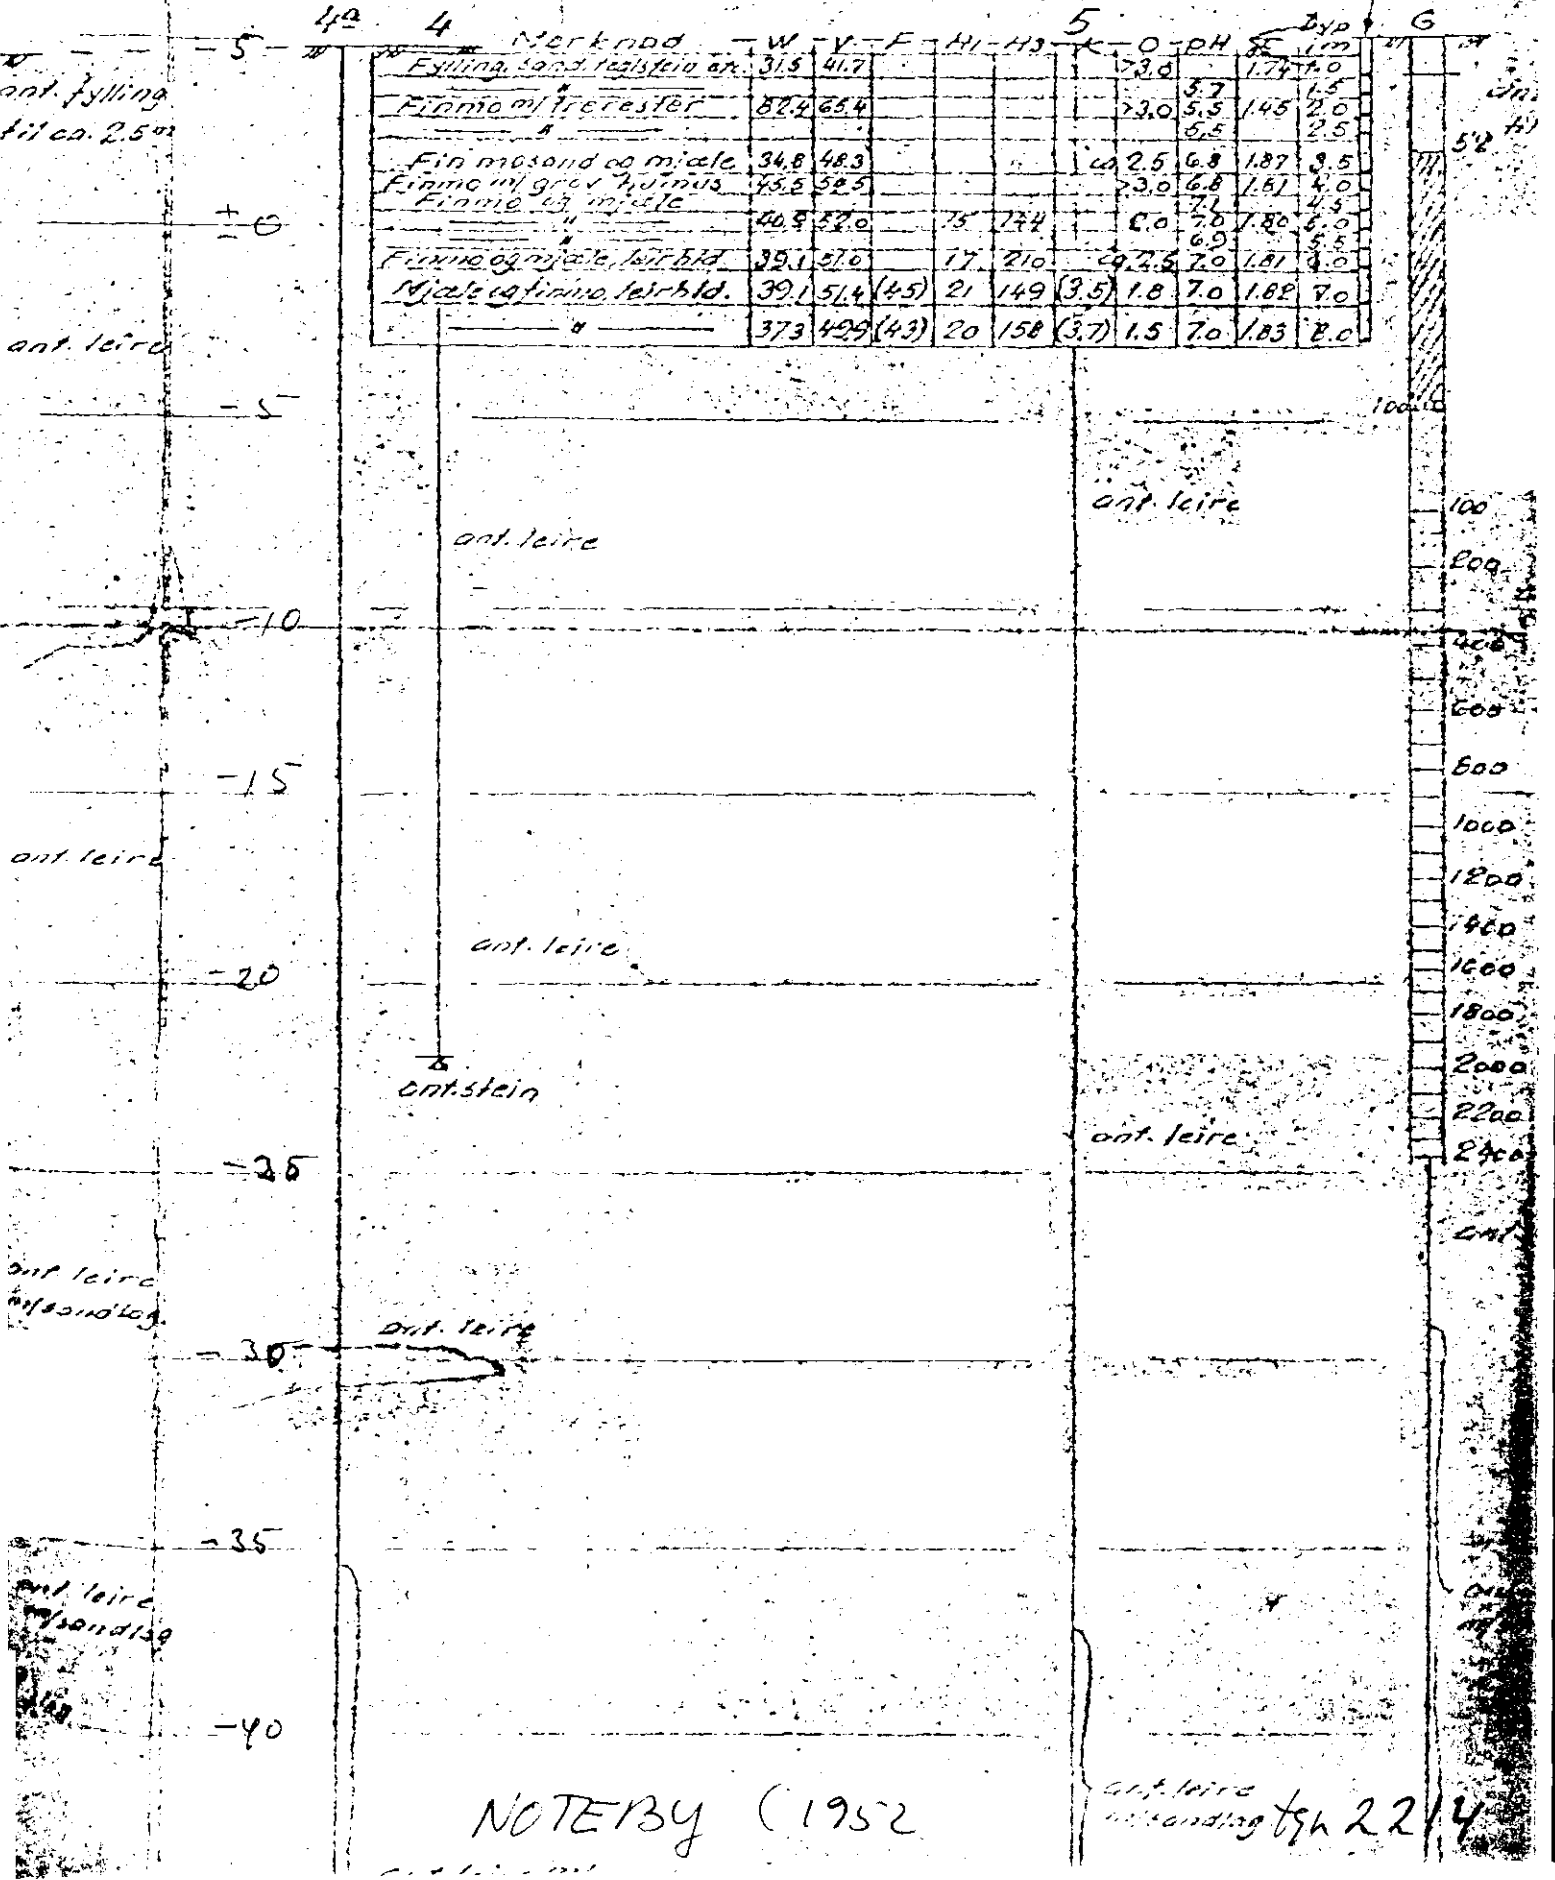 4a 4 5 6
5
Merknad W V F H1 H3 K O pH Dyp i m
Fylling, sand, teglstein etc. 31.5 41.7 >3.0 1.74 1.0
" 5.7 1.5
Finmo m/ trerester 82.4 65.4 >3.0 5.5 1.45 2.0
" 5.5 2.5
Fin mosand og mjæle 34.8 48.3 ca 2.5 6.8 1.87 3.5
Finmo m/ grov humus 45.5 >3.0 6.8 4.0
Finmo og mjæle 7.1 4.5
" 15 2.0 7.0 1.80 5.0
" 6.9 5.5
Finmo og mjæle, leirbld. 39.1 51.0 17 210 ca. 2.5 7.0 1.81 6.0
Mjæle og finmo, leirbld. 39.1 51.4 (45) 21 149 (3.5) 1.8 7.0 1.82 7.0
" 37.3 49.9 (43) 20 158 (3.7) 1.5 7.0 1.83 8.0
ant. fylling
til ca. 2.5 m
± 0
ant. leire
-5
100
ant. leire
100
ant. leire
200
-10
400
600
-15
800
1000
ant. leire
1200
1400
ant. leire
-20
1600
1800
2000
ant. stein
2200
ant. leire
2400
-25
ant.
ant. leire
m/sandlag
ant. leire
-30
-35
ant. leire
m/sandlag
-40
ant. leire
m/sandlag
NOTEBY (1952
tgn 2214